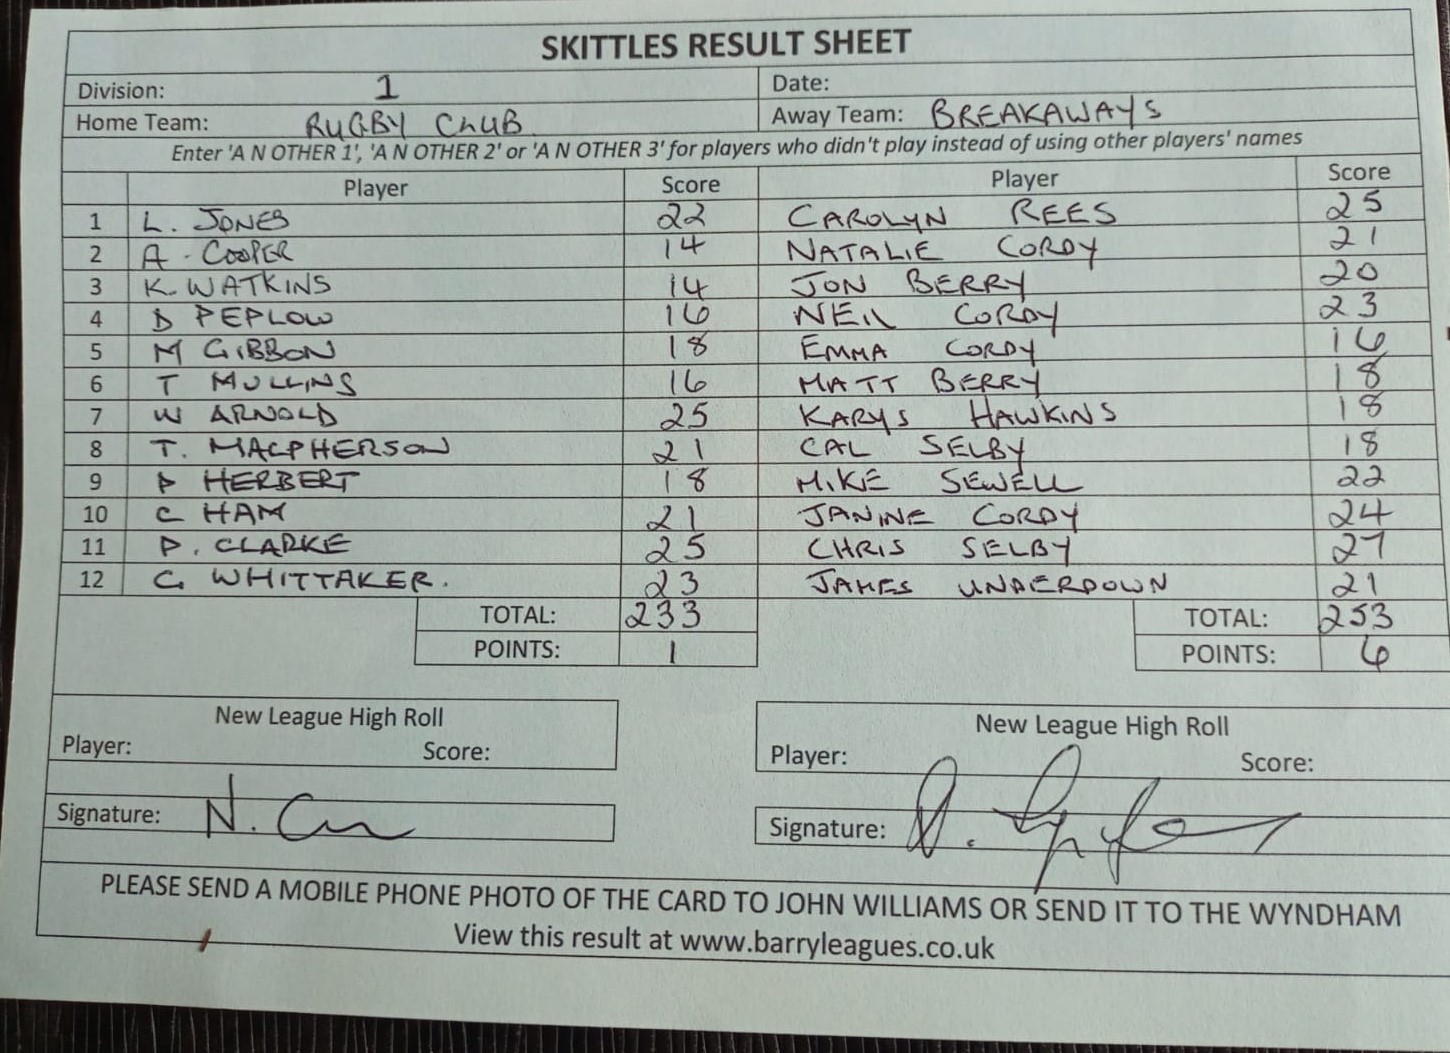 SKITTLES RESULT SHEET
Division: 1 Date:
Home Team: RUGBY CLUB Away Team: BREAKAWAYS
Enter 'A N OTHER 1', 'A N OTHER 2' or 'A N OTHER 3' for players who didn't play instead of using other players' names
Player Score Player Score
1 L. JONES 22 CAROLYN REES 25
2 A. COOPER 14 NATALIE CORDY 21
3 K. WATKINS 14 JON BERRY 20
4 D PEPLOW 16 NEIL CORDY 23
5 M GIBBON 18 EMMA CORDY 16
6 T MULLINS 16 MATT BERRY 18
7 W ARNOLD 25 KARYS HAWKINS 18
8 T. MACPHERSON 21 CAL SELBY 18
9 P HERBERT 18 MIKE SEWELL 22
10 C HAM 21 JANINE CORDY 24
11 P. CLARKE 25 CHRIS SELBY 27
12 G WHITTAKER. 23 JAMES UNDERDOWN 21
TOTAL: 233 TOTAL: 253
POINTS: 1 POINTS: 6
New League High Roll New League High Roll
Player: Score: Player: Score:
Signature: N. Signature:
PLEASE SEND A MOBILE PHONE PHOTO OF THE CARD TO JOHN WILLIAMS OR SEND IT TO THE WYNDHAM
View this result at www.barryleagues.co.uk